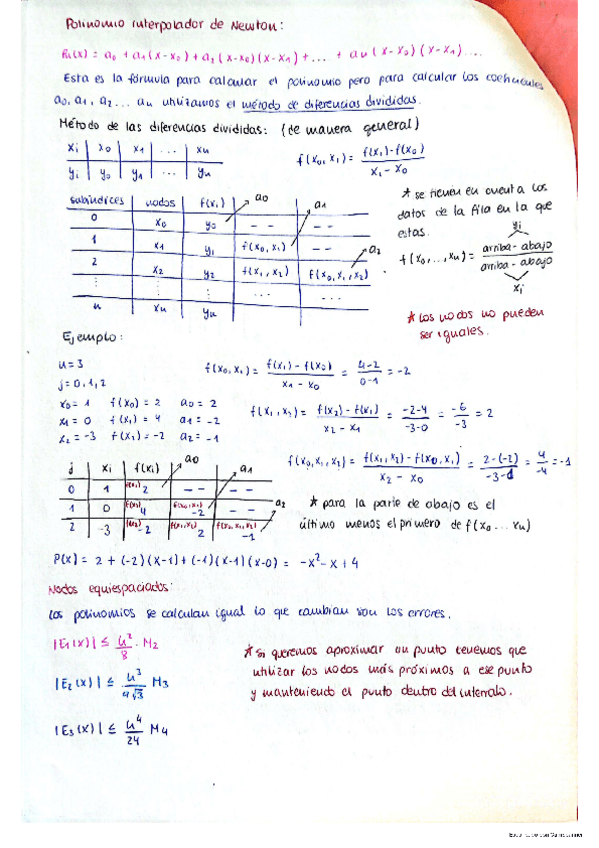 Polinomio interpolador de Newton:
Pn(x) = a0 + a1(x-x0) + a2(x-x0)(x-x1) + ... + an(x-x0)(x-x1)...
Esta es la fórmula para calcular el polinomio pero para calcular los coeficientes
a0, a1, a2 ... an utilizamos el método de diferencias divididas.
Método de las diferencias divididas: (de manera general)
xi | x0 | x1 | ... | xn
yi | y0 | y1 | ... | yn
f(x0,x1) = f(x1)-f(x0) / x1 - x0
subíndices | nodos | f(xi) a0 a1
0 | x0 | y0 | - - | - -
1 | x1 | y1 | f(x0,x1) | - - a2
2 | x2 | y2 | f(x1,x2) | f(x0,x1,x2)
⋮ | ⋮ | ⋮ | ... | ...
n | xn | yn
* se tienen en cuenta los
datos de la fila en la que
estas.
yi
f(x0,...,xn) = arriba - abajo / arriba - abajo
xi
* Los nodos no pueden
ser iguales.
Ejemplo:
n=3
j=0,1,2
x0= 1 f(x0) = 2 a0 = 2
x1 = 0 f(x1) = 4 a1 = -2
x2 = -3 f(x2) = -2 a2 = -1
f(x0,x1) = f(x1) - f(x0) / x1 - x0 = 4-2 / 0-1 = -2
f(x1,x2) = f(x2) - f(x1) / x2 - x1 = -2-4 / -3-0 = -6 / -3 = 2
f(x0,x1,x2) = f(x1,x2) - f(x0,x1) / x2 - x0 = 2-(-2) / -3-1 = 4 / -4 = -1
j | xi | f(xi) a0 a1
0 | 1 | f(x0) 2 | - - | - -
1 | 0 | f(x1) 4 | f(x0,x1) -2 | - - a2
2 | -3 | f(x2) -2 | f(x1,x2) 2 | f(x0,x1,x2) -1
* para la parte de abajo es el
último menos el primero de f(x0...xn)
P(x) = 2 + (-2)(x-1)+(-1)(x-1)(x-0) = -x²-x+4
Nodos equiespaciados:
Los polinomios se calculan igual lo que cambian son los errores.
|E1(x)| ≤ h² / 8 · M2
|E2(x)| ≤ h³ / 9√3 M3
|E3(x)| ≤ h⁴ / 24 M4
* Si queremos aproximar un punto tenemos que
utilizar los nodos más próximos a ese punto
y manteniendo el punto dentro del intervalo.